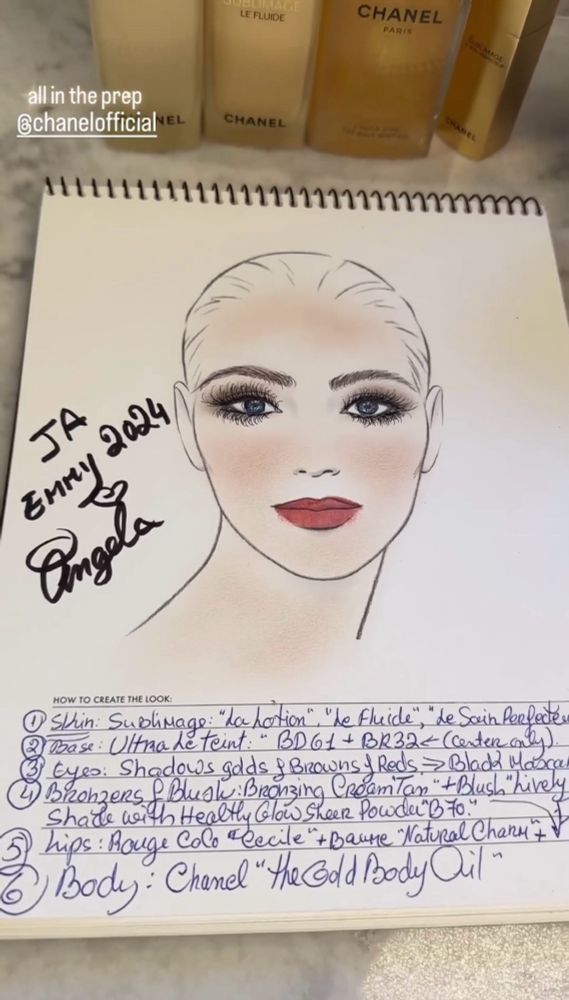 SUBLIMAGE
LE FLUIDE
CHANEL
PARIS
SUBLIMAGE
all in the prep
@chanelofficial
NEL
CHANEL
CHANEL
JA
EMMY 2024
Angela
HOW TO CREATE THE LOOK:
① Skin: Sublimage: "La Lotion", "Le Fluide", "Le Soin Perfecteu
② Base: Ultra Le Teint: " BD61 + BR32 ← (Center only).
③ Eyes: Shadows golds & Browns & Reds ⇒ Black Mascar
④ Bronzers & Blush: Bronzing Cream Tan" + Blush "Lively
Shade with Healthy Glow Sheer Powder "B70."
⑤ Lips: Rouge CoCo "Cecile" + Baume "Natural Charm" +
⑥ Body: Chanel "The Gold Body Oil"